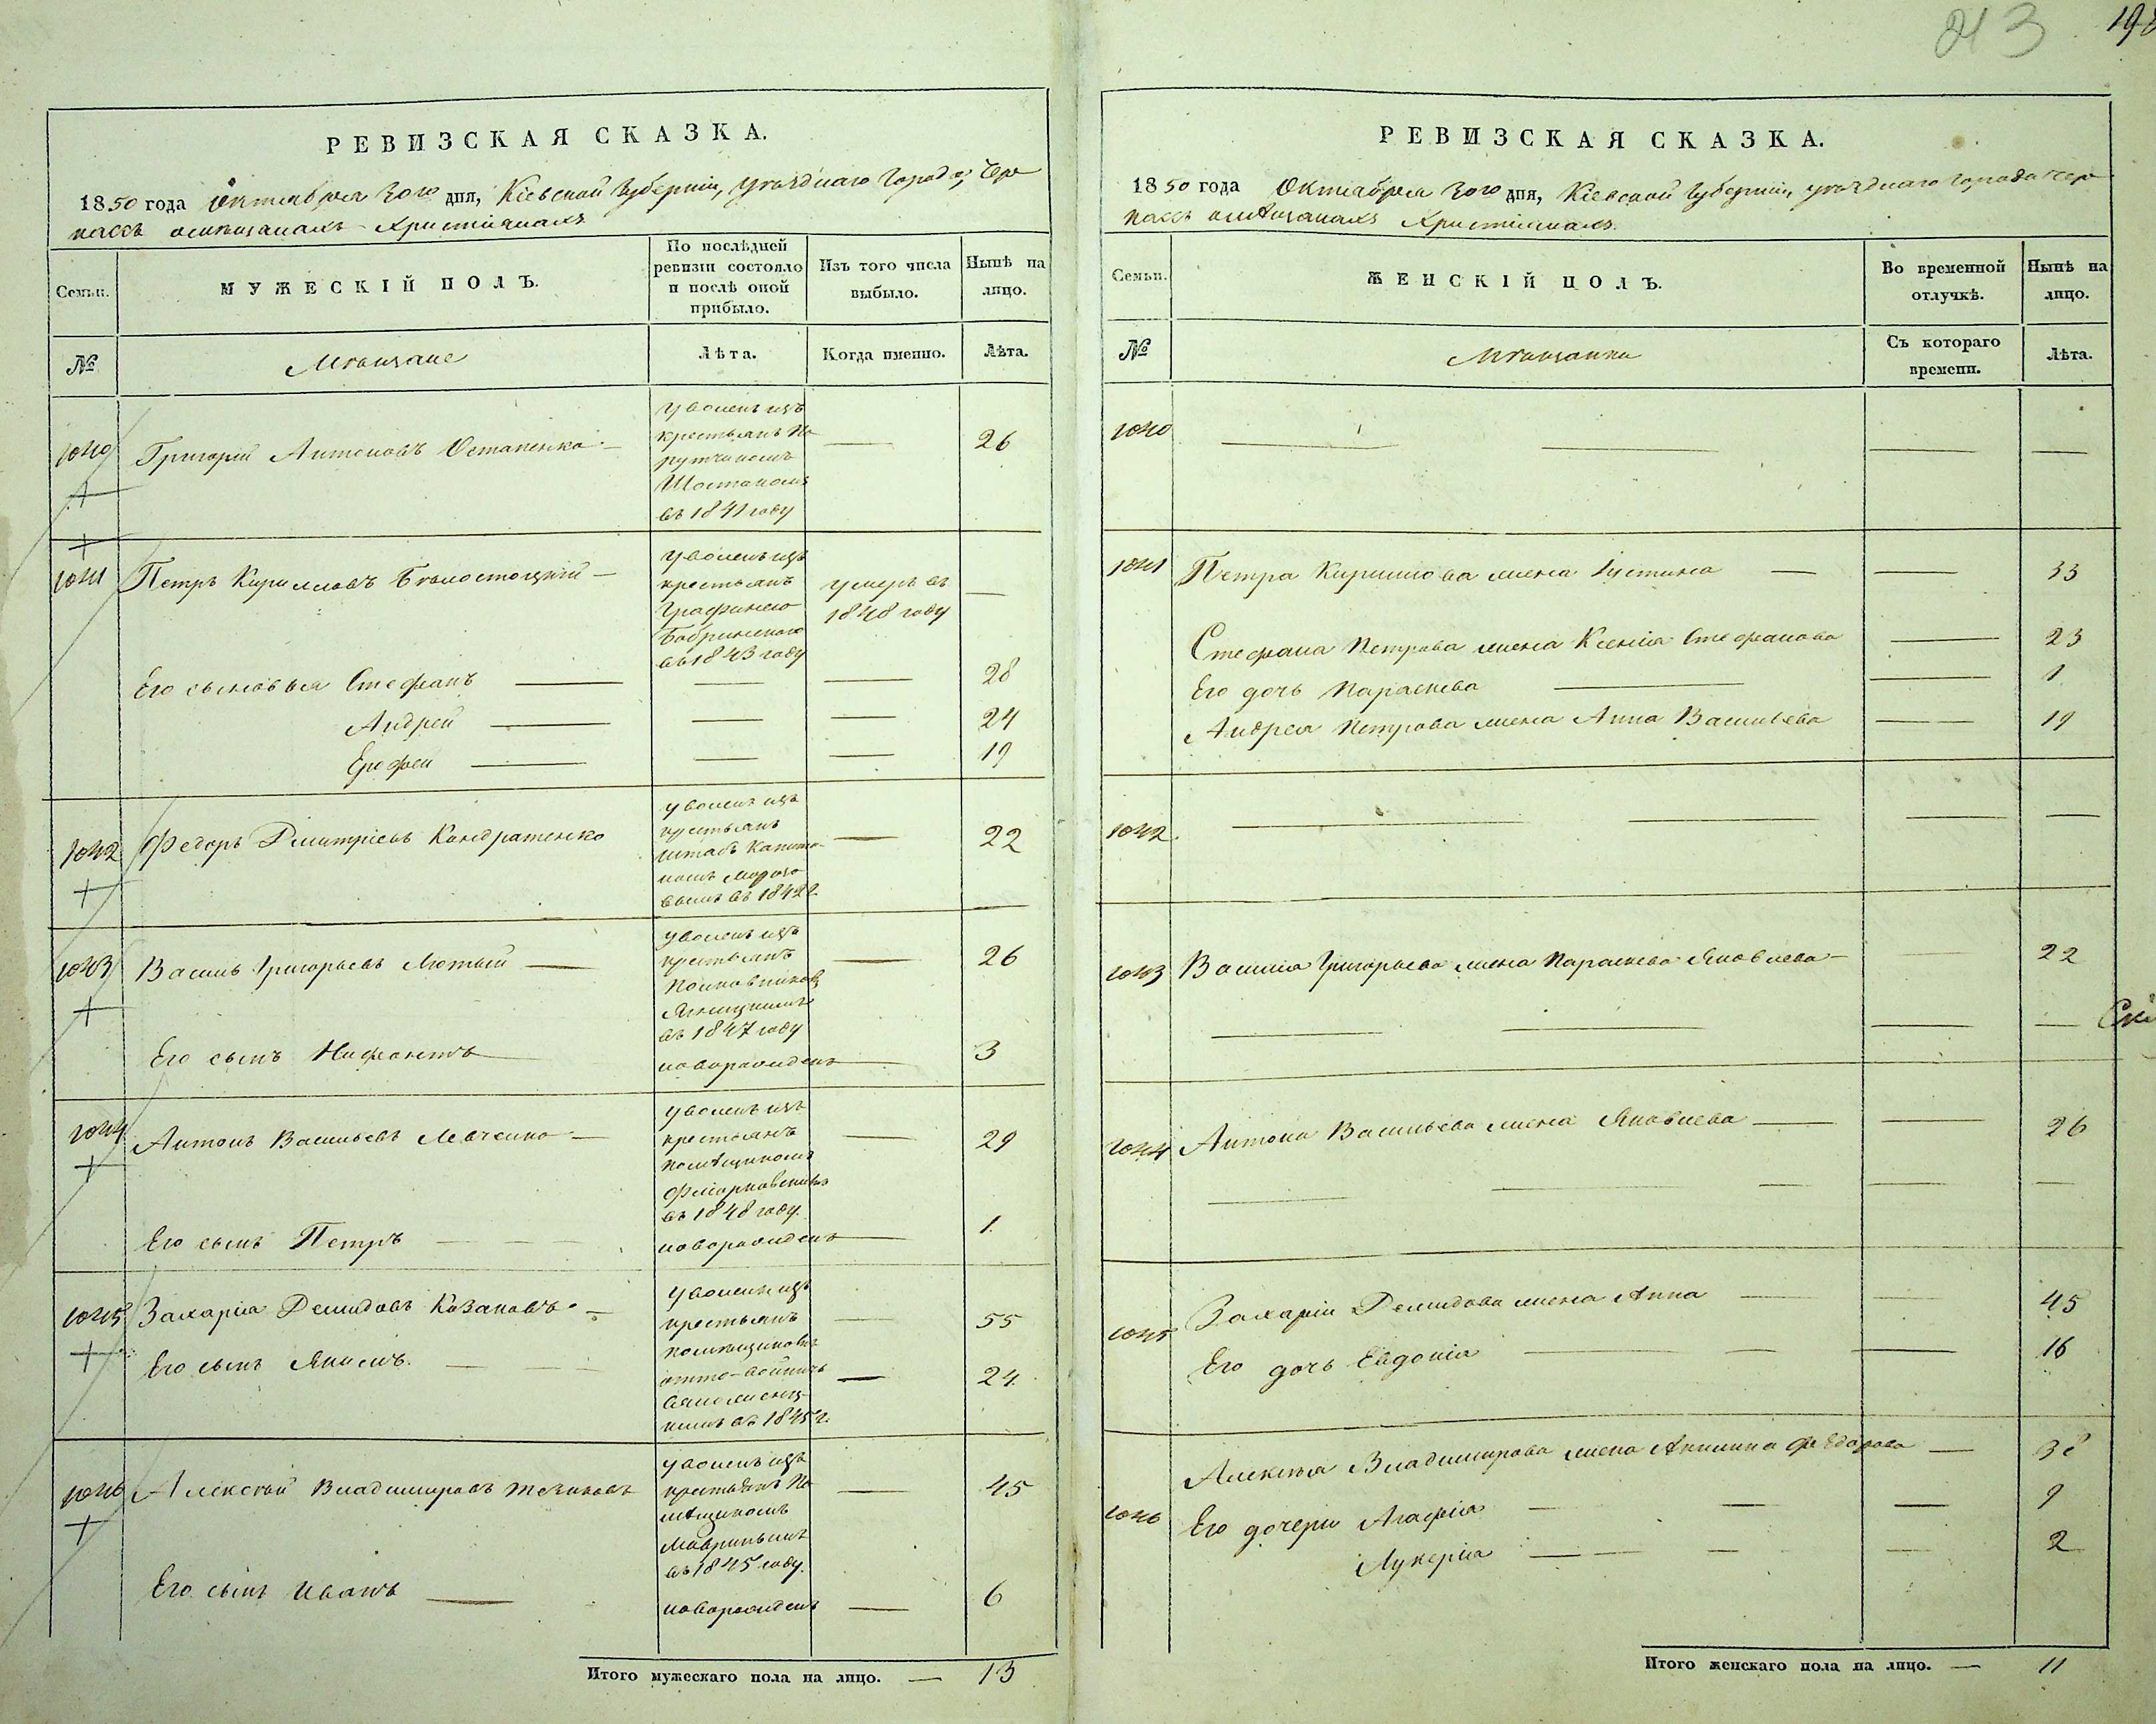 213 198
РЕВИЗСКАЯ СКАЗКА.
1850 года Октября 30го дня, Кіевской Губерніи, уѣзднаго города Чер
касъ омѣщанахъ Христіянахъ
Семьи. МУЖЕСКІЙ ПОЛЪ. По послѣдней ревизіи состояло и послѣ оной прибыло. Изъ того числа выбыло. Нынѣ на лицо.
№ Мѣщане Лѣта. Когда именно. Лѣта.
1040 Григорій Антоновъ Остапенко уволенъ изъ крестьянъ По 26
в 1841 году
1041 Петръ Кирилловъ Бѣлостоцкій уволенъ изъ
крестьянъ умеръ въ
Графинею 1848 году
Бобринскою
въ 1843 году
Его сыновья Стефанъ 28
Андрей 24
Ерофей 19
1042 Федоръ Дмитріевъ Кондратенко уволенъ изъ 22
крестьянъ
штабъ капита
номъ Морозо
вымъ въ 1842 г.
1043 Василь Григорьевъ Лютый уволенъ изъ 26
крестьянъ
въ 1847 году
Его сынъ Нифонтъ новорожденъ 3
1044 Антонъ Васильевъ Левченко уволенъ изъ 29
крестьянъ
помѣщикомъ
въ 1848 году.
Его сынъ Петръ новорожденъ 1
1045 Захарія Демидовъ Казановъ уволенъ изъ 55
крестьянъ
помѣщикомъ
Его сынъ Якимъ 24
въ 1845 г.
1046 Алексѣй Владимировъ уволенъ изъ 45
крестьянъ По
мѣщикомъ
въ 1845 году.
Его сынъ Иванъ новорожденъ 6
Итого мужескаго пола на лицо. 13
РЕВИЗСКАЯ СКАЗКА.
1850 года Октября 30го дня, Кіевской Губерніи, уѣзднаго города Чер
касъ омѣщанахъ Христіянахъ.
Семьи. ЖЕНСКІЙ ПОЛЪ. Во временной отлучкѣ. Нынѣ на лицо.
№ Мѣщанки Съ котораго времени. Лѣта.
1040
1041 Петра Кирилова жена Іустина 33
Стефана Петрова жена Ксенія Стефанова 23
Его дочь Параскева 1
Андрея Петрова жена Анна Васильева 19
1042
1043 Василія Григорьева жена Параскева Яковлева 22
1044 Антона Васильева жена Яковлева 26
1045 Захаріи Демидова жена Анна 45
Его дочь Евдокія 16
1046 Алексѣя Владимирова жена Акилина Федорова 38
Его дочери Агафія 9
Лукерія 2
Итого женскаго пола на лицо. 11